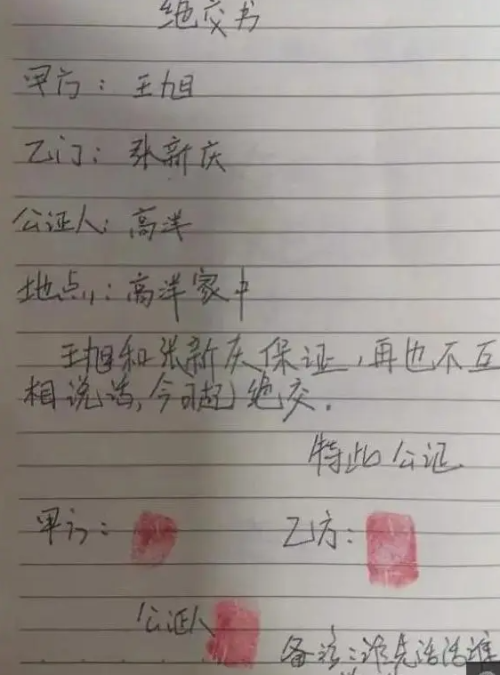 绝交书
甲方：王旭
乙门：张新庆
公证人：高洋
地点：高洋家中
王旭和张新庆保证，再也不互
相说话，今日起绝交．
特此公证
甲方：
乙方：
公证人
备注：谁先话谁